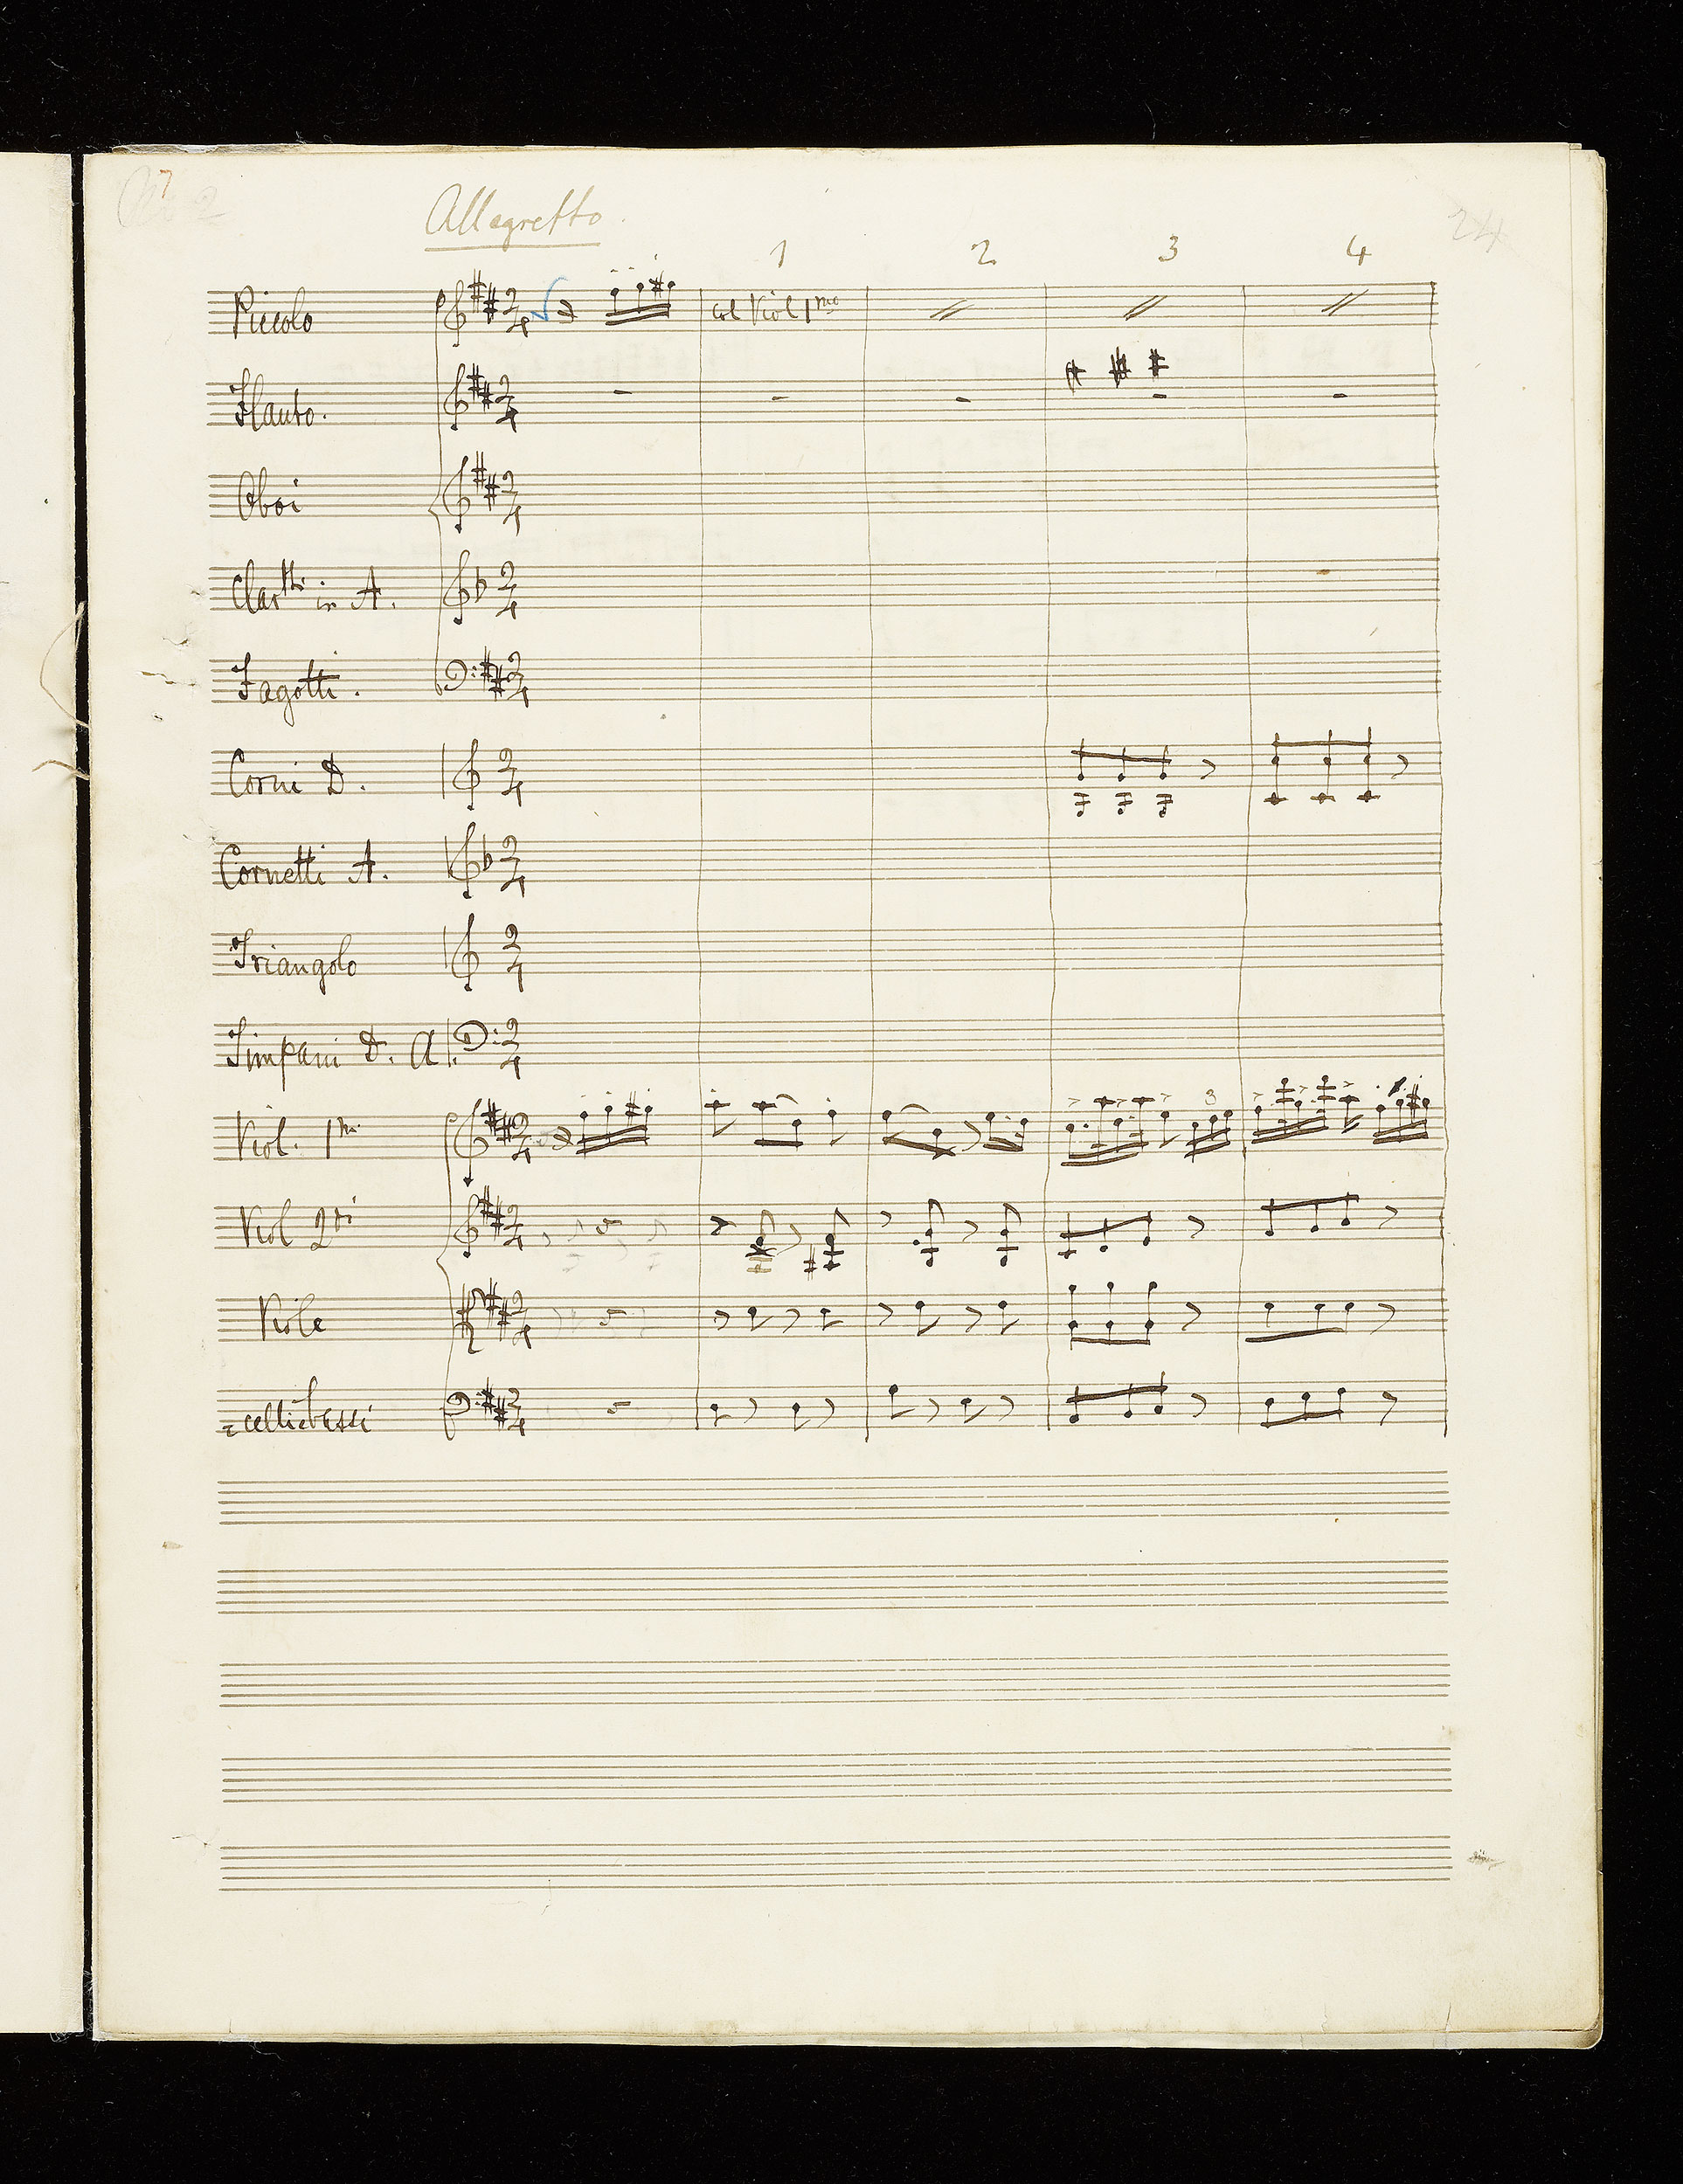 7
No 2
Allegretto.
24
1 2 3 4
Piccolo
col Viol 1mo
Flauto.
Oboi
Clartti in A.
Fagotti.
Corni D.
Cornetti A.
Triangolo
Timpani D. A
Viol. 1mi
3
Viol 2di
Viole
celli e bassi